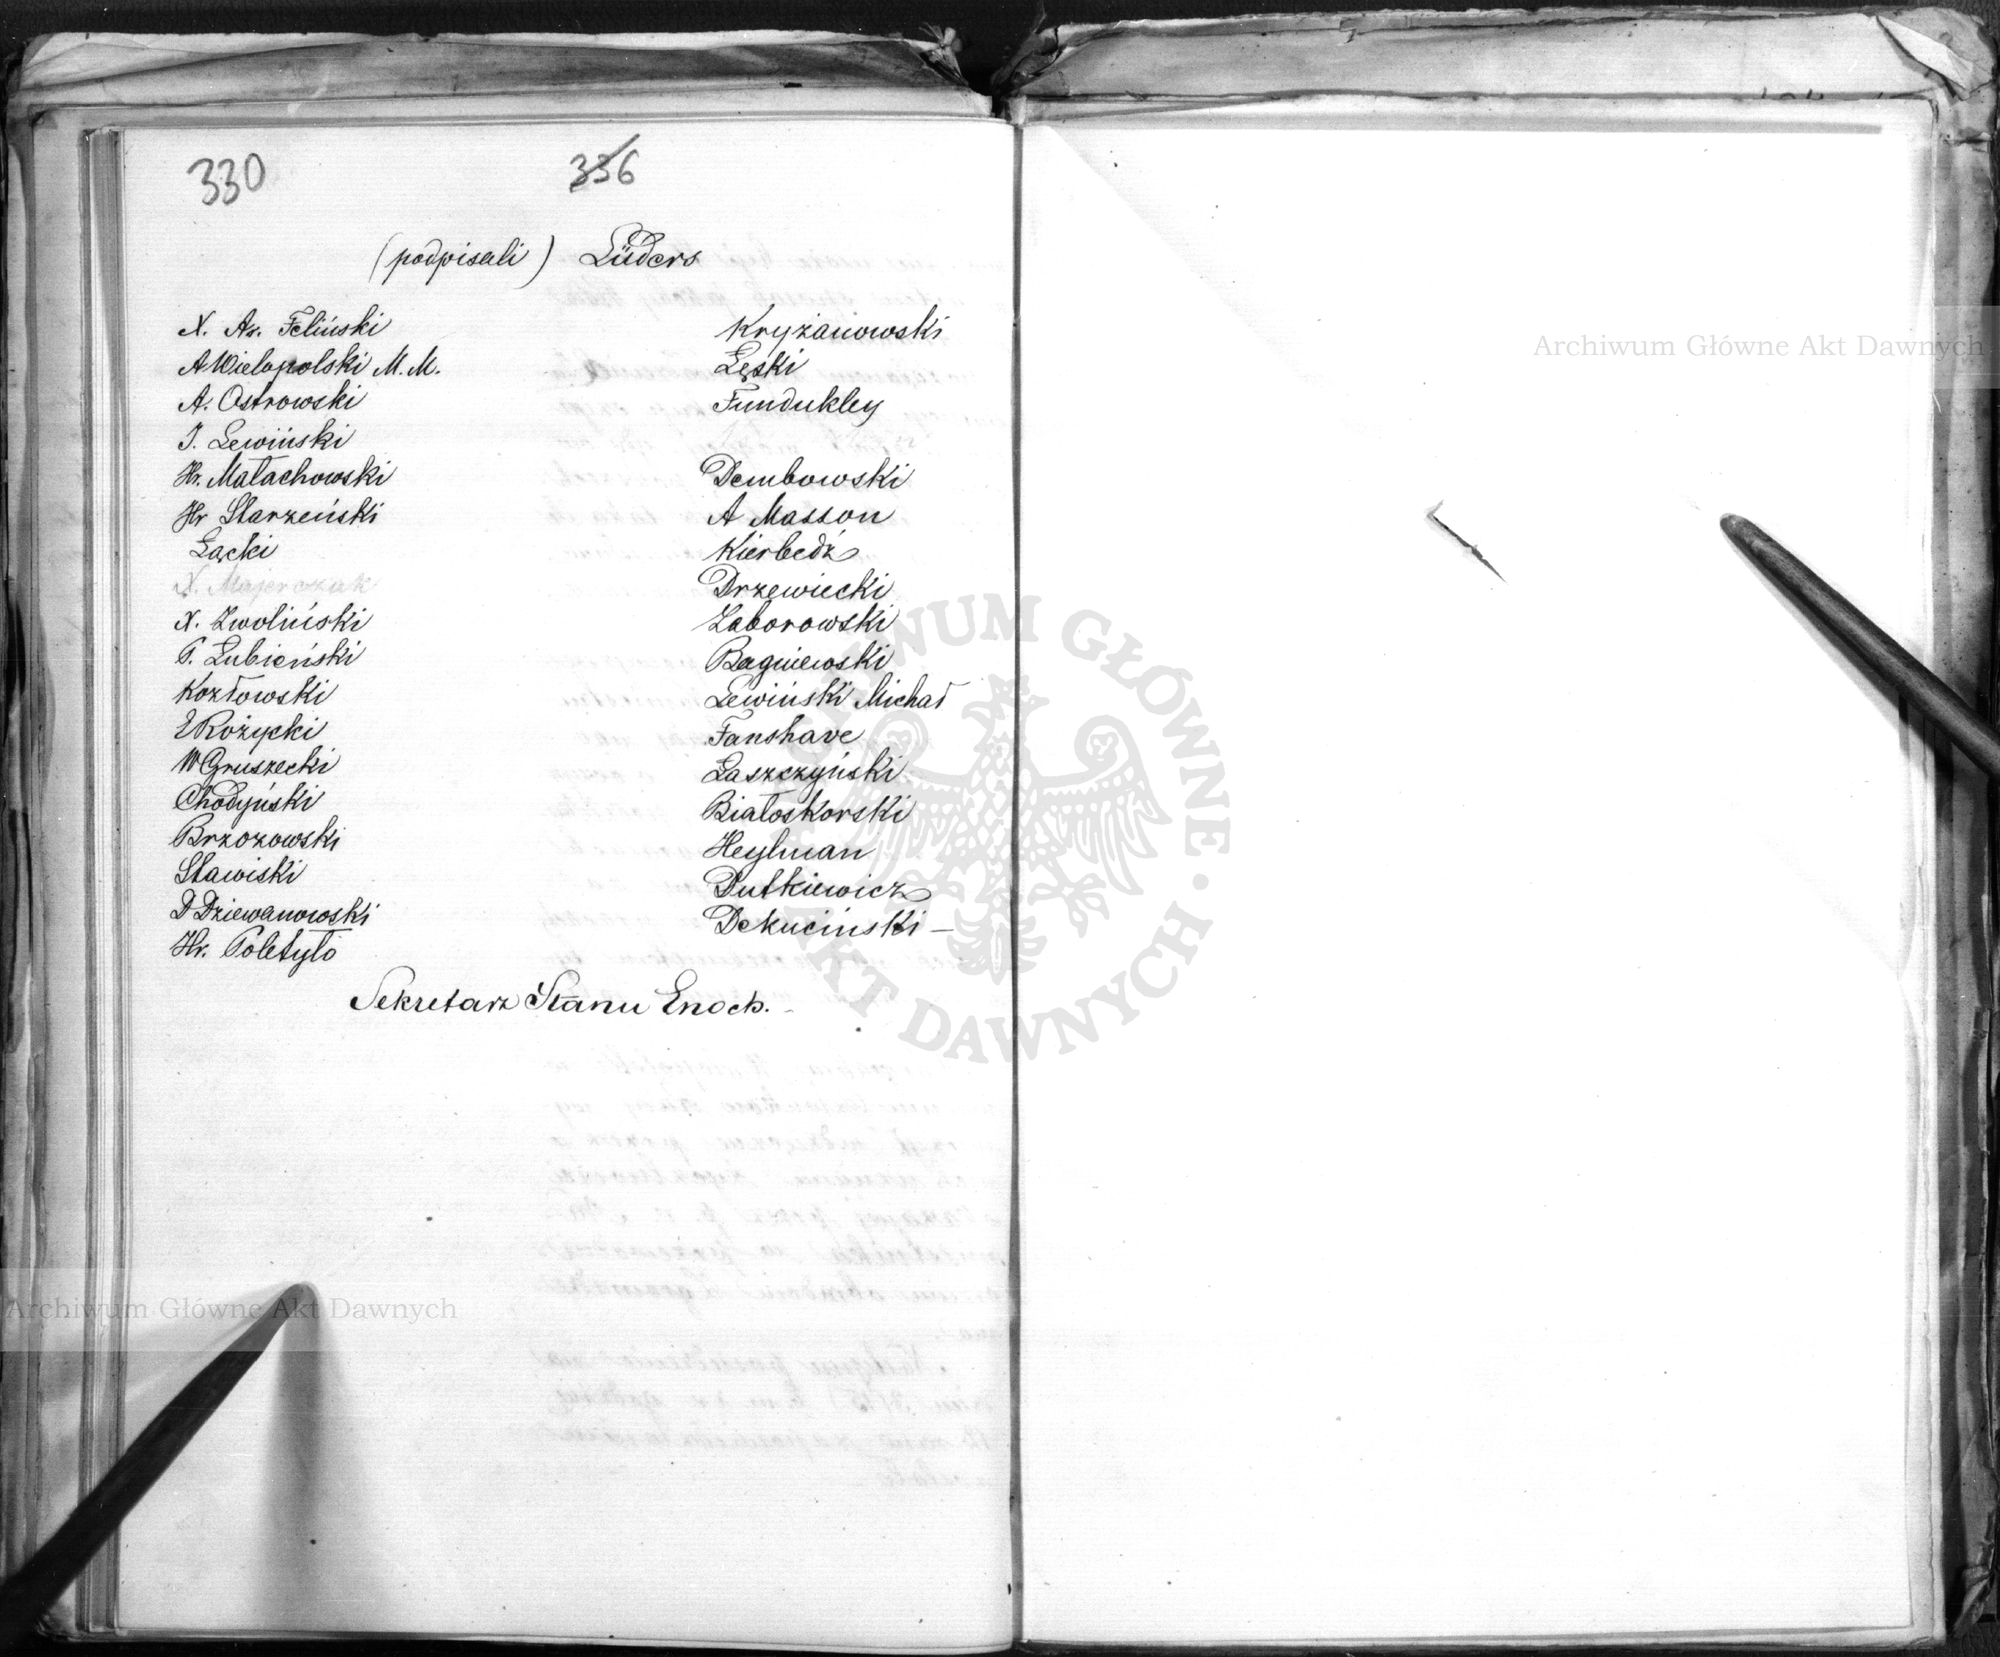 330 336
(podpisali) Lüders
X. Az. Feliński
A Wielopolski M. M.
A. Ostrowski
J. Lewiński
Hr. Małachowski
Hr Starzeński
Łącki
X. Majerczak
X. Zwoliński
P. Łubieński
Kozłowski
E Różycki
W Gruszecki
Chodyński
Brzozowski
Stawiski
D Dziewanowski
Hr. Poletyło
Kryżanowski
Łęski
Fundukley
Dembowski
A Masson
Kierbedź
Drzewiecki
Zaborowski
Bagniewski
Lewiński Michał
Fanshave
Łaszczyński
Białoskorski
Heylman
Dutkiewicz
DeKuciński –
Sekretarz Stanu Enoch. –
Archiwum Główne Akt Dawnych
Archiwum Główne Akt Dawnych
ARCHIWUM GŁÓWNE AKT DAWNYCH